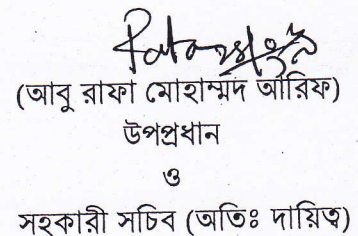 (আবু রাফা মোহাম্মদ আরিফ)
উপপ্রধান
ও
সহকারী সচিব (অতিঃ দায়িত্ব)